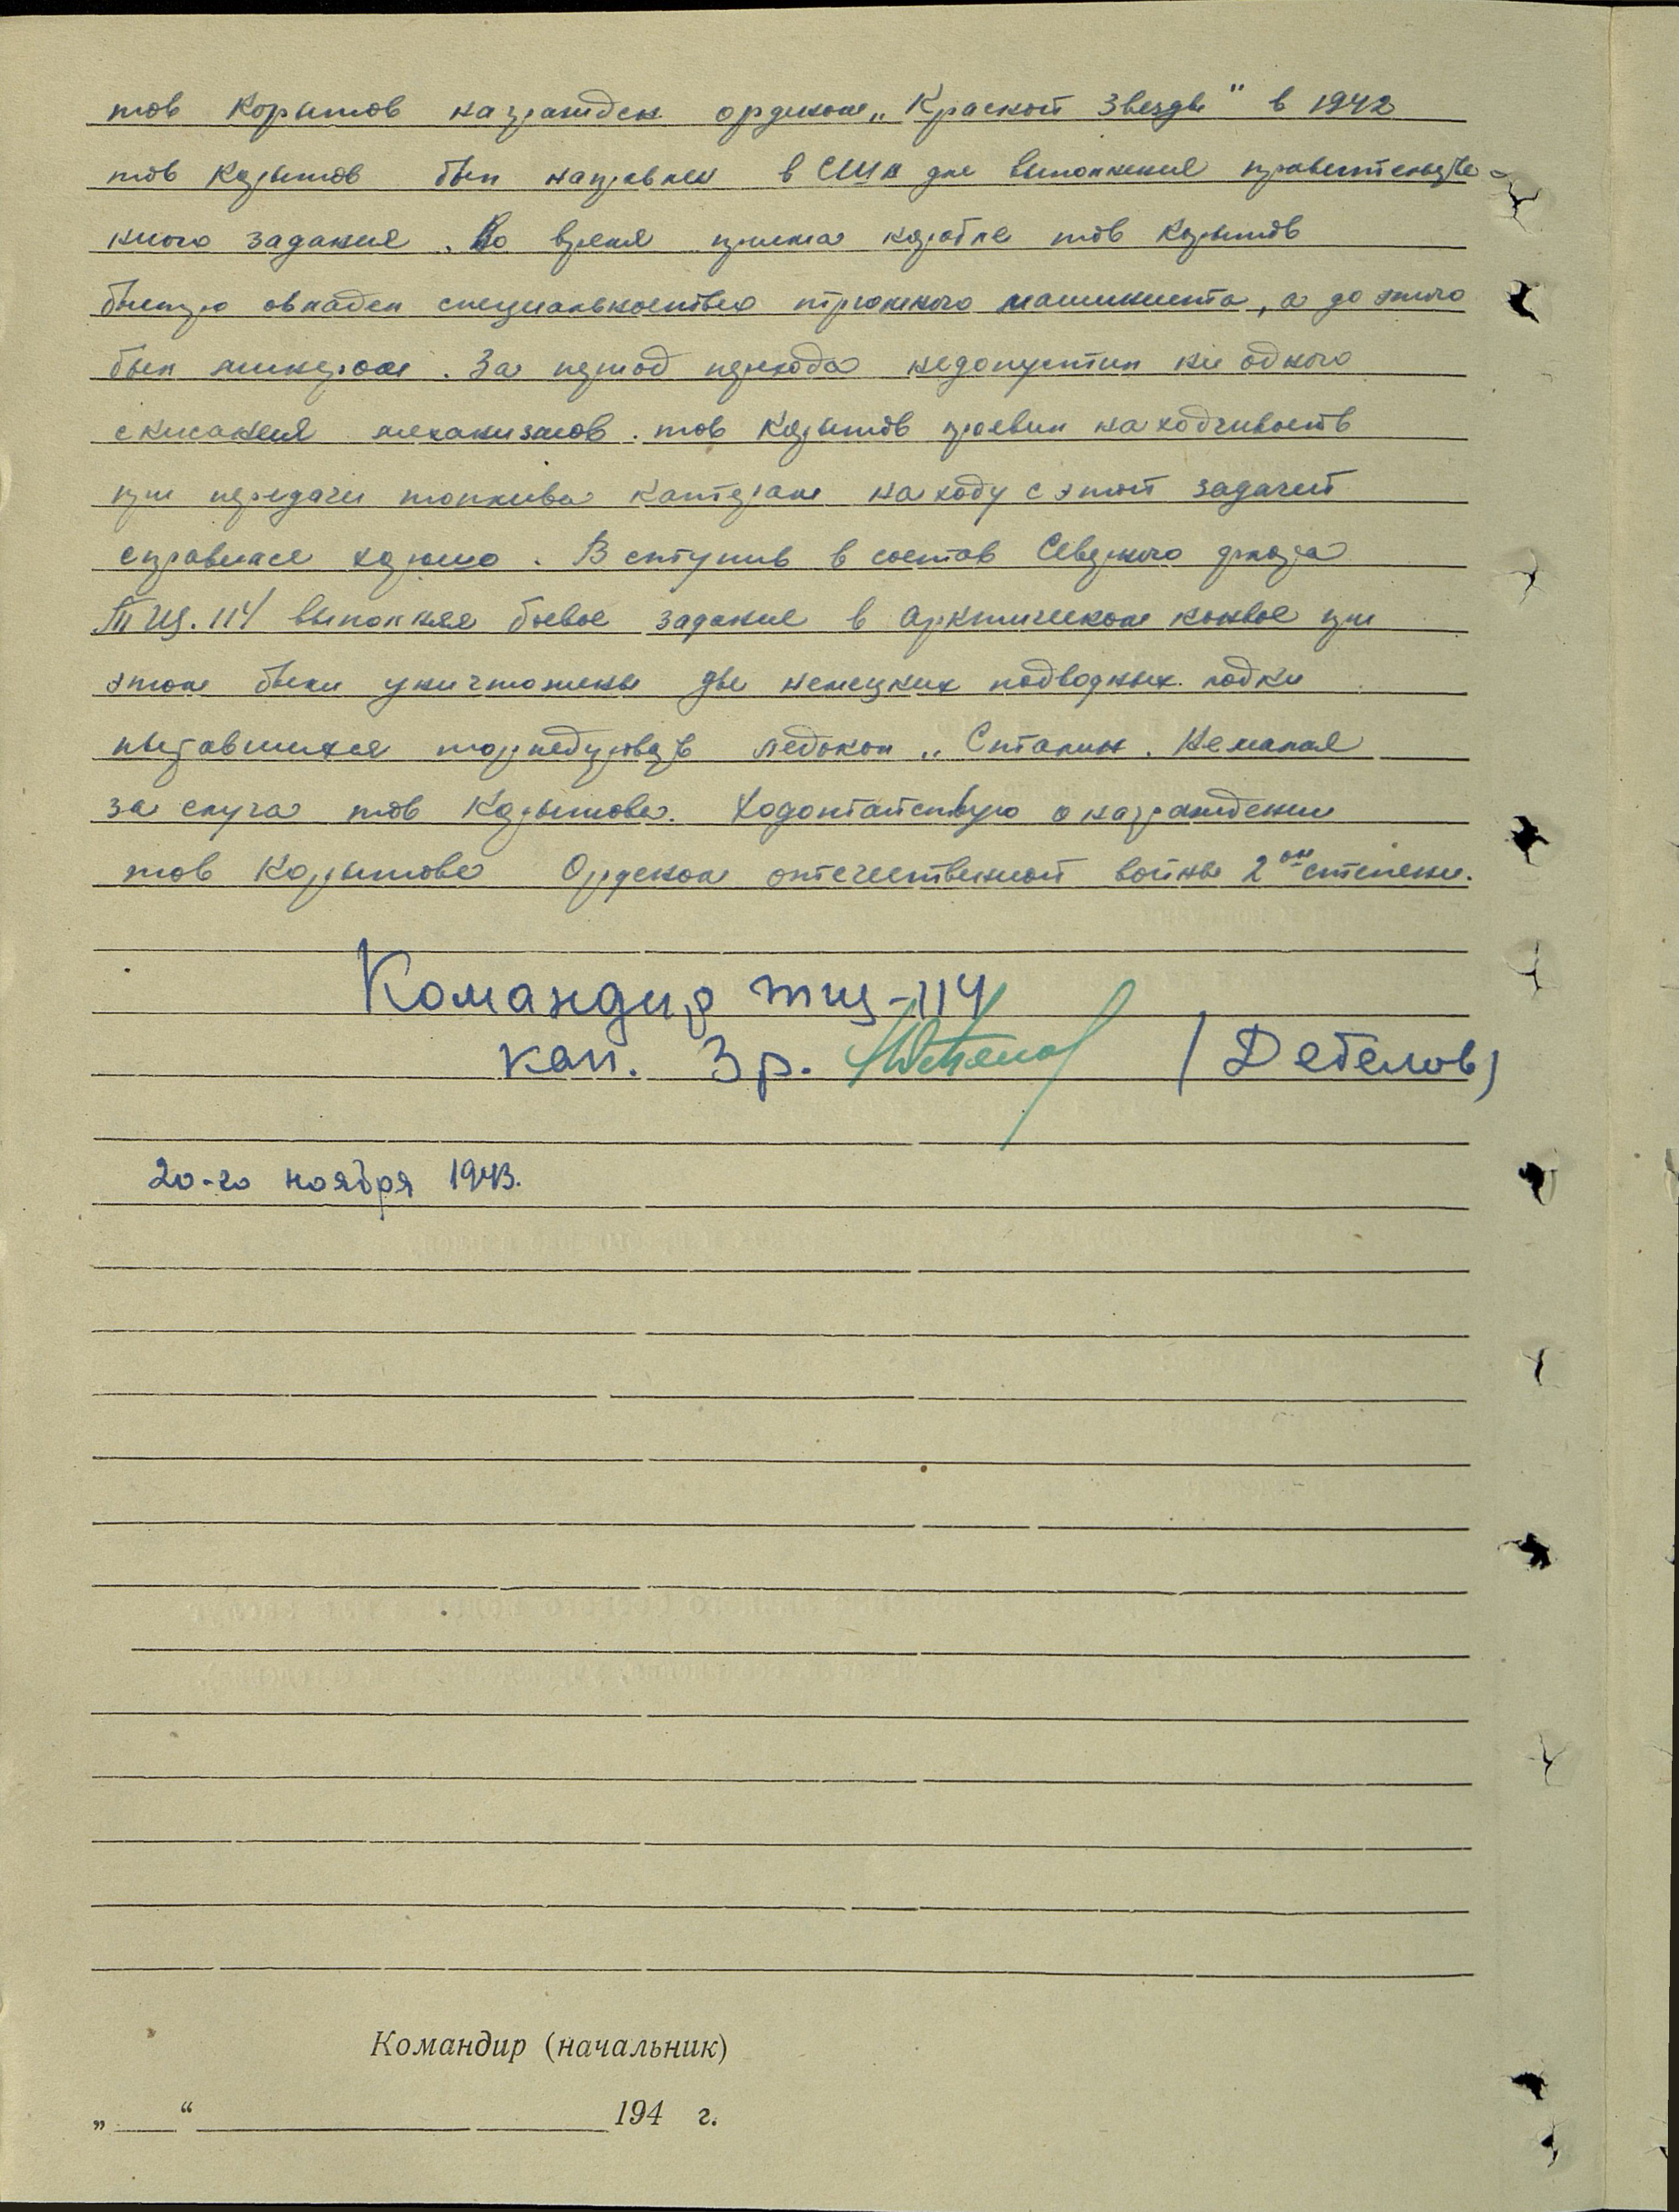 тов Корытов награжден орденом „Красной Звезды" в 1942
тов Корытов был направлен в США для выполнения правительстве-
нного задания. Во время приема корабля тов Корытов
быстро овладел специальностью трюмного машиниста, а до этого
был минером. За период перехода недопустил ни одного
скисания механизмов. тов Корытов проявил находчивость
при передачи топлива катерам на ходу с этой задачей
справился хорошо. Вступив в состав Северного флота
ТЩ. 114 выполняя боевое задание в Арктическом конвое при
этом были уничтожены две немецких подводных лодки
пытавшихся торпедировать ледокол „Сталин. Немалая
заслуга тов Корытова. Ходотайствую о награждении
тов Корытова Орденом отечественной войны 2ой степени.
Командир тщ-114
кап. 3 р. (Дебелов)
20-го ноября 1943.
Командир (начальник)
„ “ 194 г.